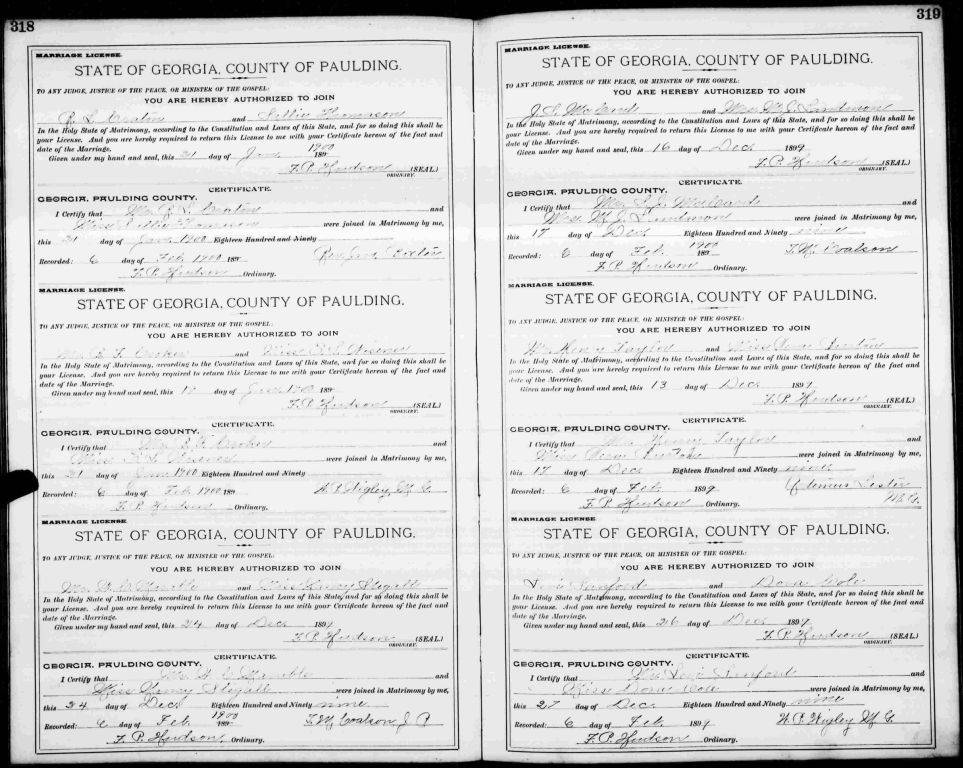 318
MARRIAGE LICENSE.
STATE OF GEORGIA, COUNTY OF PAULDING.
TO ANY JUDGE, JUSTICE OF THE PEACE, OR MINISTER OF THE GOSPEL:
YOU ARE HEREBY AUTHORIZED TO JOIN
and
In the Holy State of Matrimony, according to the Constitution and Laws of this State, and for so doing this shall be
your License. And you are hereby required to return this License to me with your Certificate hereon of the fact and
date of the Marriage.
Given under my hand and seal, this 21 day of Jany 1900 189
F. P. Hudson (SEAL)
ORDINARY.
CERTIFICATE.
GEORGIA, PAULDING COUNTY.
I Certify that Mr. and
Miss were joined in Matrimony by me,
this 21 day of Jany 1900 Eighteen Hundred and Ninety
Recorded: 6 day of Feb 1900 189
F. P. Hudson Ordinary.
MARRIAGE LICENSE.
STATE OF GEORGIA, COUNTY OF PAULDING.
TO ANY JUDGE, JUSTICE OF THE PEACE, OR MINISTER OF THE GOSPEL:
YOU ARE HEREBY AUTHORIZED TO JOIN
Mr. and Miss
In the Holy State of Matrimony, according to the Constitution and Laws of this State, and for so doing this shall be
your License. And you are hereby required to return this License to me with your Certificate hereon of the fact and
date of the Marriage.
Given under my hand and seal, this day of Jany 1900 189
F. P. Hudson (SEAL)
ORDINARY.
CERTIFICATE.
GEORGIA, PAULDING COUNTY.
I Certify that Mr. and
Miss were joined in Matrimony by me,
this 21 day of Jany 1900 Eighteen Hundred and Ninety
Recorded: 6 day of Feb 1900 189 H. P. Wigley M. G.
F. P. Hudson Ordinary.
MARRIAGE LICENSE
STATE OF GEORGIA, COUNTY OF PAULDING.
TO ANY JUDGE, JUSTICE OF THE PEACE, OR MINISTER OF THE GOSPEL:
YOU ARE HEREBY AUTHORIZED TO JOIN
Mr. and Miss
In the Holy State of Matrimony, according to the Constitution and Laws of this State, and for so doing this shall be
your License. And you are hereby required to return this License to me with your Certificate hereon of the fact and
date of the Marriage.
Given under my hand and seal, this 24 day of Dec 1899
F. P. Hudson (SEAL)
ORDINARY.
CERTIFICATE.
GEORGIA, PAULDING COUNTY.
I Certify that Mr. and
Miss were joined in Matrimony by me,
this 24 day of Dec Eighteen Hundred and Ninety nine
Recorded: 6 day of Feb 1900 189 T. M. Coalson J. P.
F. P. Hudson Ordinary.
319
MARRIAGE LICENSE.
STATE OF GEORGIA, COUNTY OF PAULDING.
TO ANY JUDGE, JUSTICE OF THE PEACE, OR MINISTER OF THE GOSPEL:
YOU ARE HEREBY AUTHORIZED TO JOIN
J. S. and Miss M. J.
In the Holy State of Matrimony, according to the Constitution and Laws of this State, and for so doing this shall be
your License. And you are hereby required to return this License to me with your Certificate hereon of the fact and
date of the Marriage.
Given under my hand and seal, this 16 day of Dec 1899
F. P. Hudson (SEAL)
ORDINARY.
CERTIFICATE.
GEORGIA, PAULDING COUNTY.
I Certify that Mr. and
Miss M. J. were joined in Matrimony by me,
this 17 day of Dec Eighteen Hundred and Ninety nine
Recorded: 6 day of Feb 1900 189 T. M. Coalson
F. P. Hudson Ordinary.
MARRIAGE LICENSE.
STATE OF GEORGIA, COUNTY OF PAULDING.
TO ANY JUDGE, JUSTICE OF THE PEACE, OR MINISTER OF THE GOSPEL:
YOU ARE HEREBY AUTHORIZED TO JOIN
Mr Henry Taylor and Miss
In the Holy State of Matrimony, according to the Constitution and Laws of this State, and for so doing this shall be
your License. And you are hereby required to return this License to me with your Certificate hereon of the fact and
date of the Marriage.
Given under my hand and seal, this 13 day of Dec 1899
F. P. Hudson (SEAL)
ORDINARY.
CERTIFICATE.
GEORGIA, PAULDING COUNTY.
I Certify that Mr. Henry Taylor and
Miss were joined in Matrimony by me,
this 17 day of Dec Eighteen Hundred and Ninety nine
Recorded: 6 day of Feb 1899 Lester
F. P. Hudson Ordinary.
MARRIAGE LICENSE
STATE OF GEORGIA, COUNTY OF PAULDING.
TO ANY JUDGE, JUSTICE OF THE PEACE, OR MINISTER OF THE GOSPEL:
YOU ARE HEREBY AUTHORIZED TO JOIN
Sanford and Dora Cole
In the Holy State of Matrimony, according to the Constitution and Laws of this State, and for so doing this shall be
your License. And you are hereby required to return this License to me with your Certificate hereon of the fact and
date of the Marriage.
Given under my hand and seal, this 26 day of Dec 1899
F. P. Hudson (SEAL)
ORDINARY.
CERTIFICATE.
GEORGIA, PAULDING COUNTY.
I Certify that Mr. Sanford and
Miss Dora Cole were joined in Matrimony by me,
this 27 day of Dec Eighteen Hundred and Ninety nine
Recorded: 6 day of Feb 1899 H. P. Wigley M. G.
F. P. Hudson Ordinary.